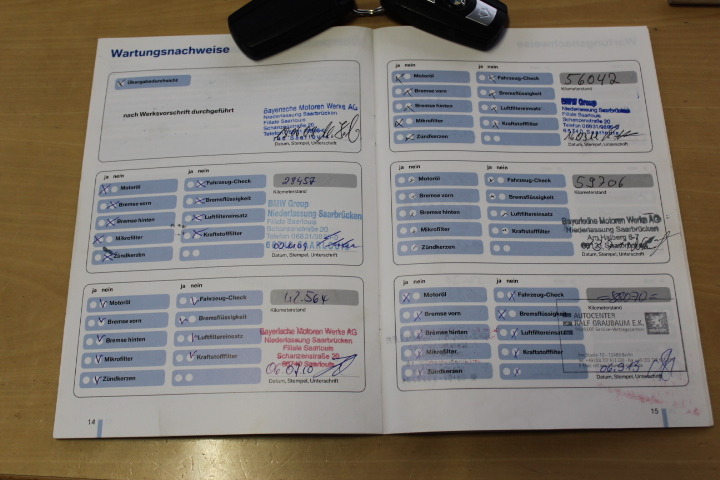 Wartungsnachweise
ja nein
Übergabedurchsicht
nach Werksvorschrift durchgeführt
Bayerische Motoren Werke AG
Niederlassung Saarbrücken
Filiale Saarlouis
Schanzenstraße 20
Datum, Stempel, Unterschrift
ja nein ja nein
Motoröl Fahrzeug-Check 29457
Kilometerstand
Bremse vorn Bremsflüssigkeit
Bremse hinten Luftfiltereinsatz
Mikrofilter Kraftstofffilter
Zündkerzen
BMW Group
Niederlassung Saarbrücken
Filiale Saarlouis
Schanzenstraße 20
Datum, Stempel, Unterschrift
ja nein ja nein
Motoröl Fahrzeug-Check 42.564
Kilometerstand
Bremse vorn Bremsflüssigkeit
Bremse hinten Luftfiltereinsatz
Mikrofilter Kraftstofffilter
Zündkerzen
Bayerische Motoren Werke AG
Niederlassung Saarbrücken
Filiale Saarlouis
Schanzenstraße 20
66740 Saarlouis
06.07.10
Datum, Stempel, Unterschrift
14
ja nein ja nein
Motoröl Fahrzeug-Check 56042
Kilometerstand
Bremse vorn Bremsflüssigkeit
Bremse hinten Luftfiltereinsatz
Mikrofilter Kraftstofffilter
Zündkerzen
BMW Group
Niederlassung Saarbrücken
Filiale Saarlouis
Schanzenstraße 20
Datum, Stempel, Unterschrift
ja nein ja nein
Motoröl Fahrzeug-Check 59706
Kilometerstand
Bremse vorn Bremsflüssigkeit
Bremse hinten Luftfiltereinsatz
Mikrofilter Kraftstofffilter
Zündkerzen
Bayerische Motoren Werke AG
Niederlassung Saarbrücken
Datum, Stempel, Unterschrift
ja nein ja nein
Motoröl Fahrzeug-Check
Kilometerstand
Bremse vorn Bremsflüssigkeit
Bremse hinten Luftfiltereinsatz
Mikrofilter Kraftstofffilter
Zündkerzen
AUTOCENTER
RALF GRAUBAUM E.K.
Datum, Stempel, Unterschrift
15